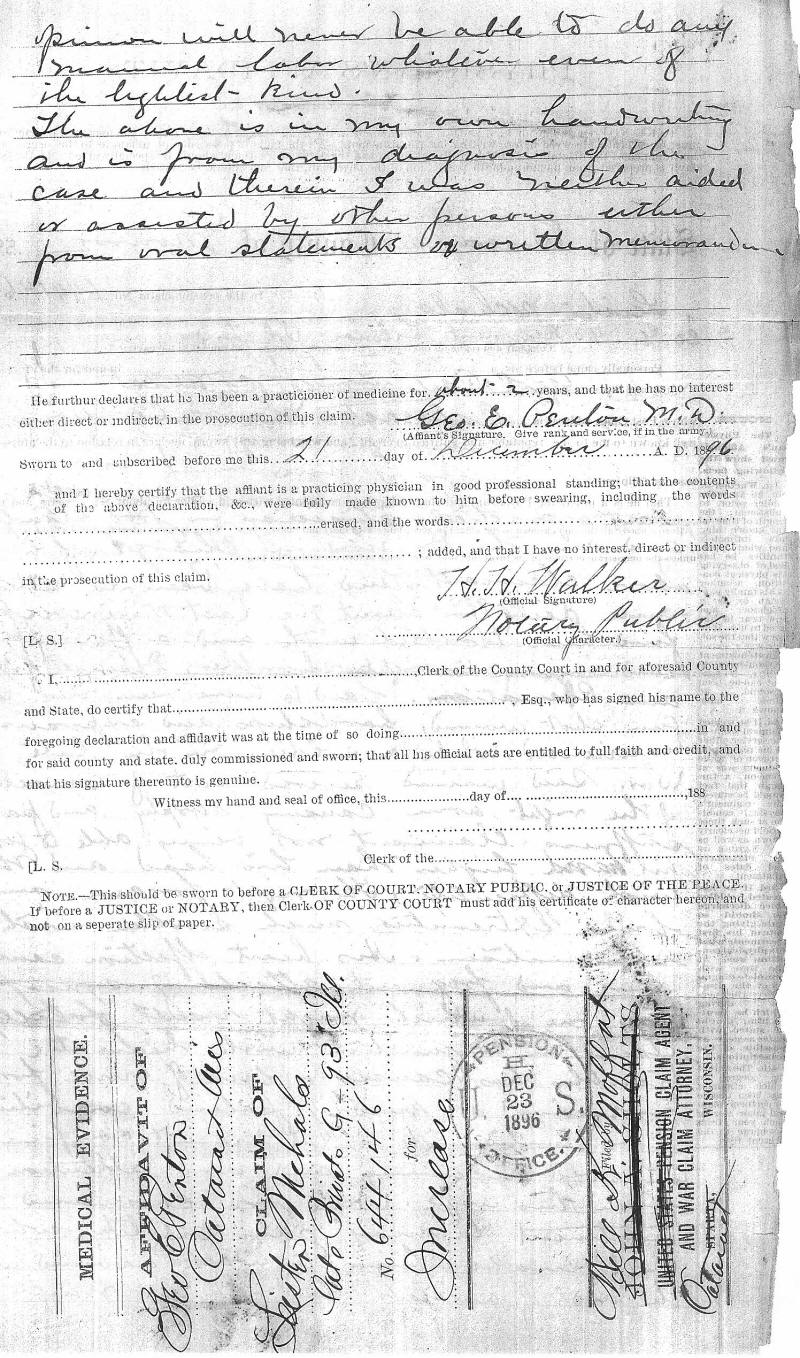 opinion will never be able to do any
manual labor whatever even of
the lightest kind.
The above is in my own handwriting
and is from my diagnosis of the
case and therein I was neither aided
or assisted by other persons either
from oral statements or written memorandum
He furthur declares that he has been a practicioner of medicine for about 2 years, and that he has no interest
either direct or indirect, in the prosecution of this claim. Geo. E. Penton M.D.
(Affiant's Signature. Give rank and service, if in the army.)
Sworn to and subscribed before me this 21 day of December A. D. 1896
and I hereby certify that the affiant is a practicing physician in good professional standing; that the contents
of the above declaration, &c., were fully made known to him before swearing, including the words
erased, and the words
; added, and that I have no interest, direct or indirect
in the prosecution of this claim.
H. H. Walker
(Official Signature)
Notary Public
[L. S.]
(Official Character.)
I, ,Clerk of the County Court in and for aforesaid County
and State, do certify that , Esq., who has signed his name to the
foregoing declaration and affidavit was at the time of so doing in and
for said county and state. duly commissioned and sworn; that all his official acts are entitled to full faith and credit, and
that his signature thereunto is genuine.
Witness my hand and seal of office, this day of ,188
[L. S. Clerk of the
NOTE.—This should be sworn to before a CLERK OF COURT, NOTARY PUBLIC, or JUSTICE OF THE PEACE.
If before a JUSTICE or NOTARY, then Clerk OF COUNTY COURT must add his certificate of character hereon, and
not on a seperate slip of paper.
MEDICAL EVIDENCE.
AFFIDAVIT OF
Geo E Penton
Cataract Wis
CLAIM OF
Lister Mchals
late Privat G - 93" Ill.
No. 644146
for
Increase
PENSION
DEC
23
1896
U. S.
OFFICE.
Filed by
Bell & Moffat
JOHN A. SHEETS
UNITED STATES PENSION CLAIM AGENT
AND WAR CLAIM ATTORNEY.
SPARTA, WISCONSIN.
Cataract